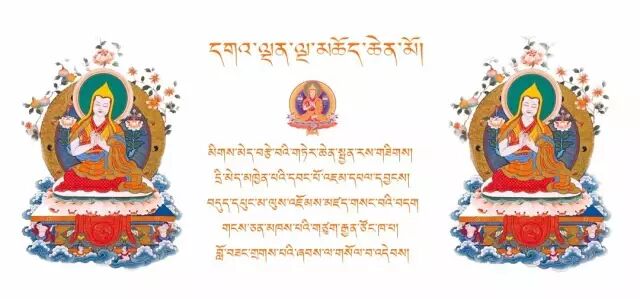 དགའ་ལྡན་ལྔ་མཆོད་ཆེན་མོ།
མིགས་མེད་བརྩེ་བའི་གཏེར་ཆེན་སྤྱན་རས་གཟིགས།
དྲི་མེད་མཁྱེན་པའི་དབང་པོ་འཇམ་དཔལ་དབྱངས།
བདུད་དཔུང་མ་ལུས་འཇོམས་མཛད་གསང་བའི་བདག
གངས་ཅན་མཁས་པའི་གཙུག་རྒྱན་ཙོང་ཁ་པ།
བློ་བཟང་གྲགས་པའི་ཞབས་ལ་གསོལ་བ་འདེབས།